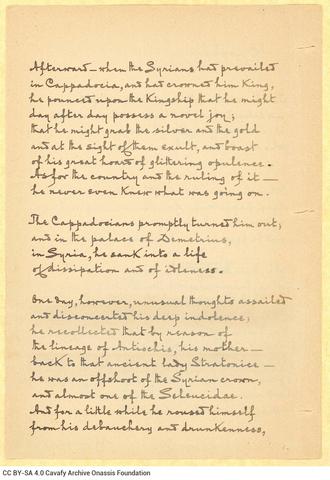 Afterward — when the Syrians had prevailed
in Cappadocia, and had crowned him King,
he pounced upon the Kingship that he might
day after day possess a novel joy;
that he might grab the silver and the gold
and at the sight of them exult, and boast
of his great hoard of glittering opulence.
As for the country and the ruling of it —
he never even knew what was going on.

The Cappadocians promptly turned him out;
and in the palace of Demetrius,
in Syria, he sank into a life
of dissipation and of idleness.

One day, however, unusual thoughts assailed
and disconcerted his deep indolence;
he recollected that by reason of
the lineage of Antiochis, his mother —
back to that ancient lady Stratonice —
he was an offshoot of the Syrian crown,
and almost one of the Seleucidae.
And for a little while he roused himself
from his debauchery and drunkenness,
CC BY-SA 4.0 Cavafy Archive Onassis Foundation